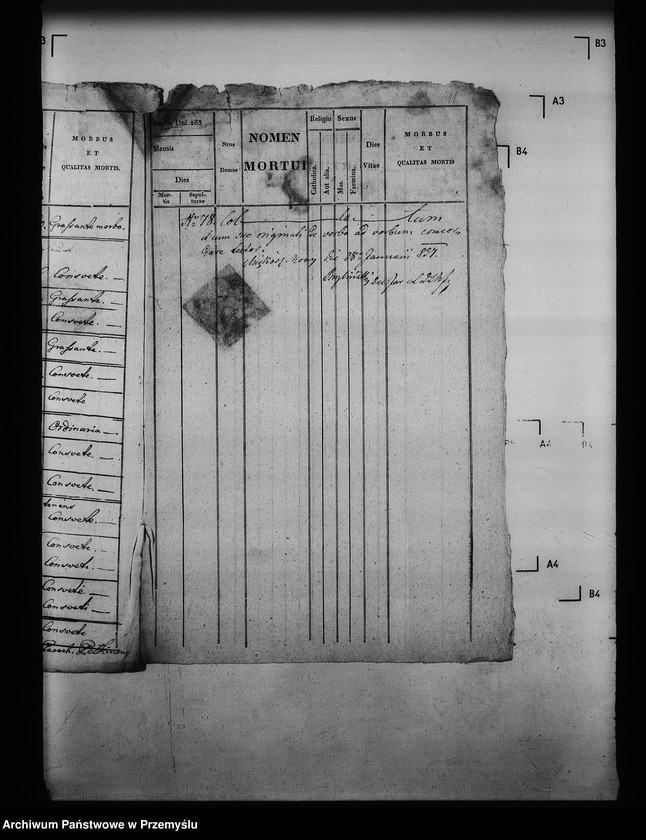 B3
A3
B4
MORBUS
ET
QUALITAS MORTIS.
Grassante morbo.
Consvete. —
Grassante. —
Consvete. —
Grassante. —
Consvete. —
Consvete
Ordinaria —
Consvete. —
Consvete. —
Consvete. —
Consvete. —
Consveti. —
Consvete —
Consveti —
Consvete
Paroch.
Dni 183
Mensis
Dies
Mor-
tis
Sepul-
turae
Nrus
Domus
NOMEN
MORTUI
Religio
Catholica.
Aut alia.
Sexus
Mas.
Femina.
Dies
Vitae
MORBUS
ET
QUALITAS MORTIS
Nr. 78. Col — la — tum
cum suo originali de verbo ad verbum concor
dare
die 28va Januarii 837.
A4
B4
Archiwum Państwowe w Przemyślu